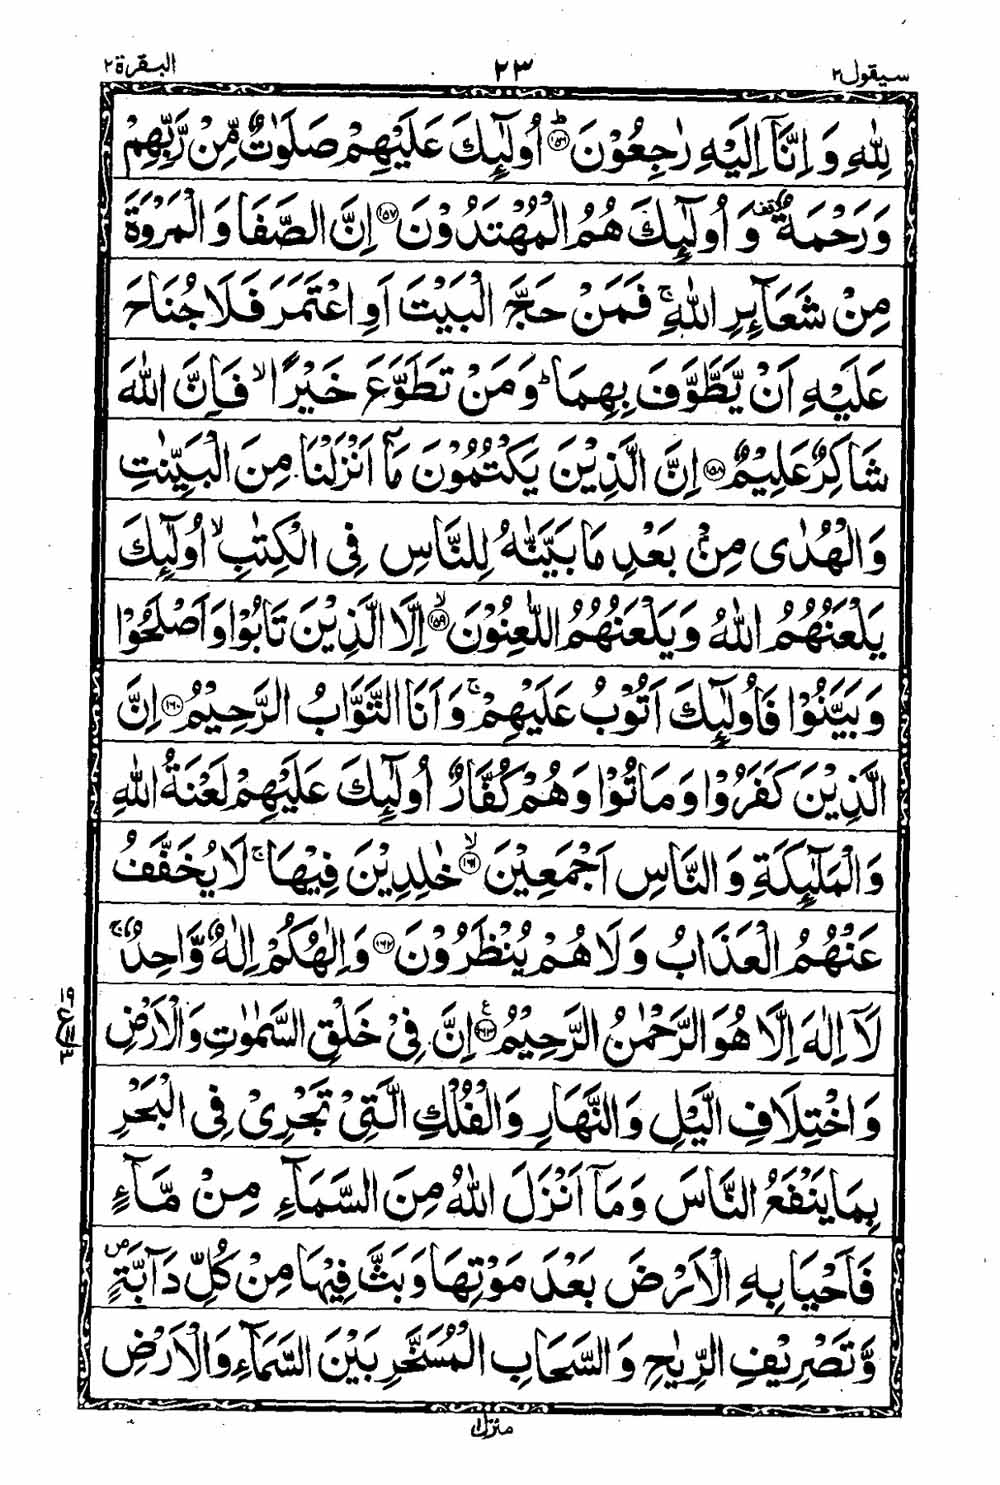 سيقول ٢ ٢٣ البقرة ٢
لِلّٰهِ وَ اِنَّاۤ اِلَيْهِ رٰجِعُوْنَ ؕ﴿۱۵۶﴾ اُولٰٓئِكَ عَلَيْهِمْ صَلَوٰتٌ مِّنْ رَّبِّهِمْ
وَ رَحْمَةٌ ۫ وَ اُولٰٓئِكَ هُمُ الْمُهْتَدُوْنَ ﴿۱۵۷﴾ اِنَّ الصَّفَا وَ الْمَرْوَةَ
مِنْ شَعَآئِرِ اللّٰهِ ۚ فَمَنْ حَجَّ الْبَيْتَ اَوِ اعْتَمَرَ فَلَا جُنَاحَ
عَلَيْهِ اَنْ يَّطَّوَّفَ بِهِمَا ؕ وَ مَنْ تَطَوَّعَ خَيْرًا ۙ فَاِنَّ اللّٰهَ
شَاكِرٌ عَلِيْمٌ ﴿۱۵۸﴾ اِنَّ الَّذِيْنَ يَكْتُمُوْنَ مَاۤ اَنْزَلْنَا مِنَ الْبَيِّنٰتِ
وَ الْهُدٰى مِنْۢ بَعْدِ مَا بَيَّنّٰهُ لِلنَّاسِ فِى الْكِتٰبِ ۙ اُولٰٓئِكَ
يَلْعَنُهُمُ اللّٰهُ وَ يَلْعَنُهُمُ اللّٰعِنُوْنَ ۙ﴿۱۵۹﴾ اِلَّا الَّذِيْنَ تَابُوْا وَ اَصْلَحُوْا
وَ بَيَّنُوْا فَاُولٰٓئِكَ اَتُوْبُ عَلَيْهِمْ ۚ وَ اَنَا التَّوَّابُ الرَّحِيْمُ ﴿۱۶۰﴾ اِنَّ
الَّذِيْنَ كَفَرُوْا وَ مَاتُوْا وَ هُمْ كُفَّارٌ اُولٰٓئِكَ عَلَيْهِمْ لَعْنَةُ اللّٰهِ
وَ الْمَلٰٓئِكَةِ وَ النَّاسِ اَجْمَعِيْنَ ۙ﴿۱۶۱﴾ خٰلِدِيْنَ فِيْهَا ۚ لَا يُخَفَّفُ
عَنْهُمُ الْعَذَابُ وَ لَا هُمْ يُنْظَرُوْنَ ﴿۱۶۲﴾ وَ اِلٰهُكُمْ اِلٰهٌ وَّاحِدٌ ۚ
لَاۤ اِلٰهَ اِلَّا هُوَ الرَّحْمٰنُ الرَّحِيْمُ ﴿۱۶۳﴾ ع اِنَّ فِىْ خَلْقِ السَّمٰوٰتِ وَ الْاَرْضِ
وَ اخْتِلَافِ الَّيْلِ وَ النَّهَارِ وَ الْفُلْكِ الَّتِىْ تَجْرِىْ فِى الْبَحْرِ
بِمَا يَنْفَعُ النَّاسَ وَ مَاۤ اَنْزَلَ اللّٰهُ مِنَ السَّمَآءِ مِنْ مَّآءٍ
فَاَحْيَا بِهِ الْاَرْضَ بَعْدَ مَوْتِهَا وَ بَثَّ فِيْهَا مِنْ كُلِّ دَآبَّةٍ ۪
وَّ تَصْرِيْفِ الرِّيٰحِ وَ السَّحَابِ الْمُسَخَّرِ بَيْنَ السَّمَآءِ وَ الْاَرْضِ
منزل ۱